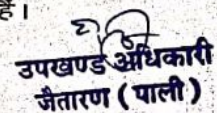 है।
उपखण्ड अधिकारी
जैतारण (पाली)